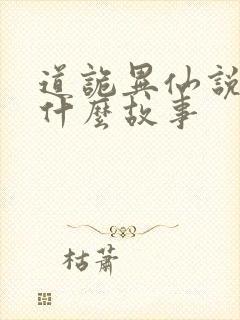 道詭異仙說
什麼故事
枯蕭